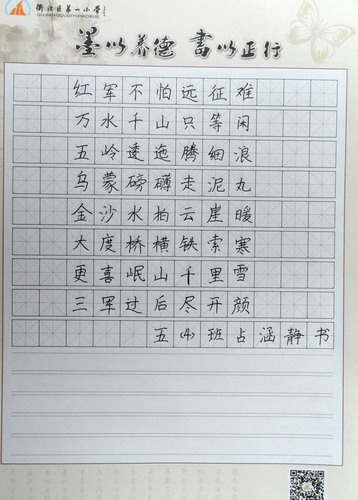 衢江区第一小学
QUJIANGQUDIYIXIAOXUE
墨以养德 書以正行
红军不怕远征难
万水千山只等闲
五岭逶迤腾细浪
乌蒙磅礴走泥丸
金沙水拍云崖暖
大度桥横铁索寒
更喜岷山千里雪
三军过后尽开颜
五(4)班占涵静书